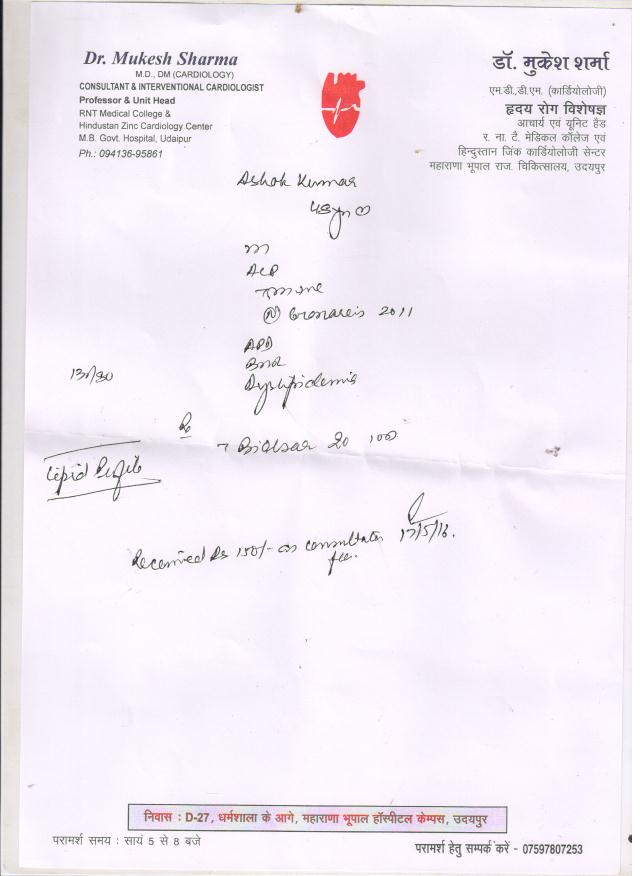 Dr. Mukesh Sharma
M.D., DM (CARDIOLOGY)
CONSULTANT & INTERVENTIONAL CARDIOLOGIST
Professor & Unit Head
RNT Medical College &
Hindustan Zinc Cardiology Center
M.B. Govt. Hospital, Udaipur
Ph.: 094136-95861
डॉ. मुकेश शर्मा
एम.डी.,डी.एम. (कार्डियोलोजी)
हृदय रोग विशेषज्ञ
आचार्य एवं यूनिट हैड
र. ना. टै. मेडिकल कॉलेज एवं
हिन्दुस्तान जिंक कार्डियोलोजी सेन्टर
महाराणा भूपाल राज. चिकित्सालय, उदयपुर
Ashok Kumar
2011
Dyslipidemia
Lipid Profile
20 100
17/5/16.
Received Rs 150/- as consultation
fee.
निवास : D-27, धर्मशाला के आगे, महाराणा भूपाल हॉस्पीटल केम्पस, उदयपुर
परामर्श समय : सायं 5 से 8 बजे
परामर्श हेतु सम्पर्क करें - 07597807253